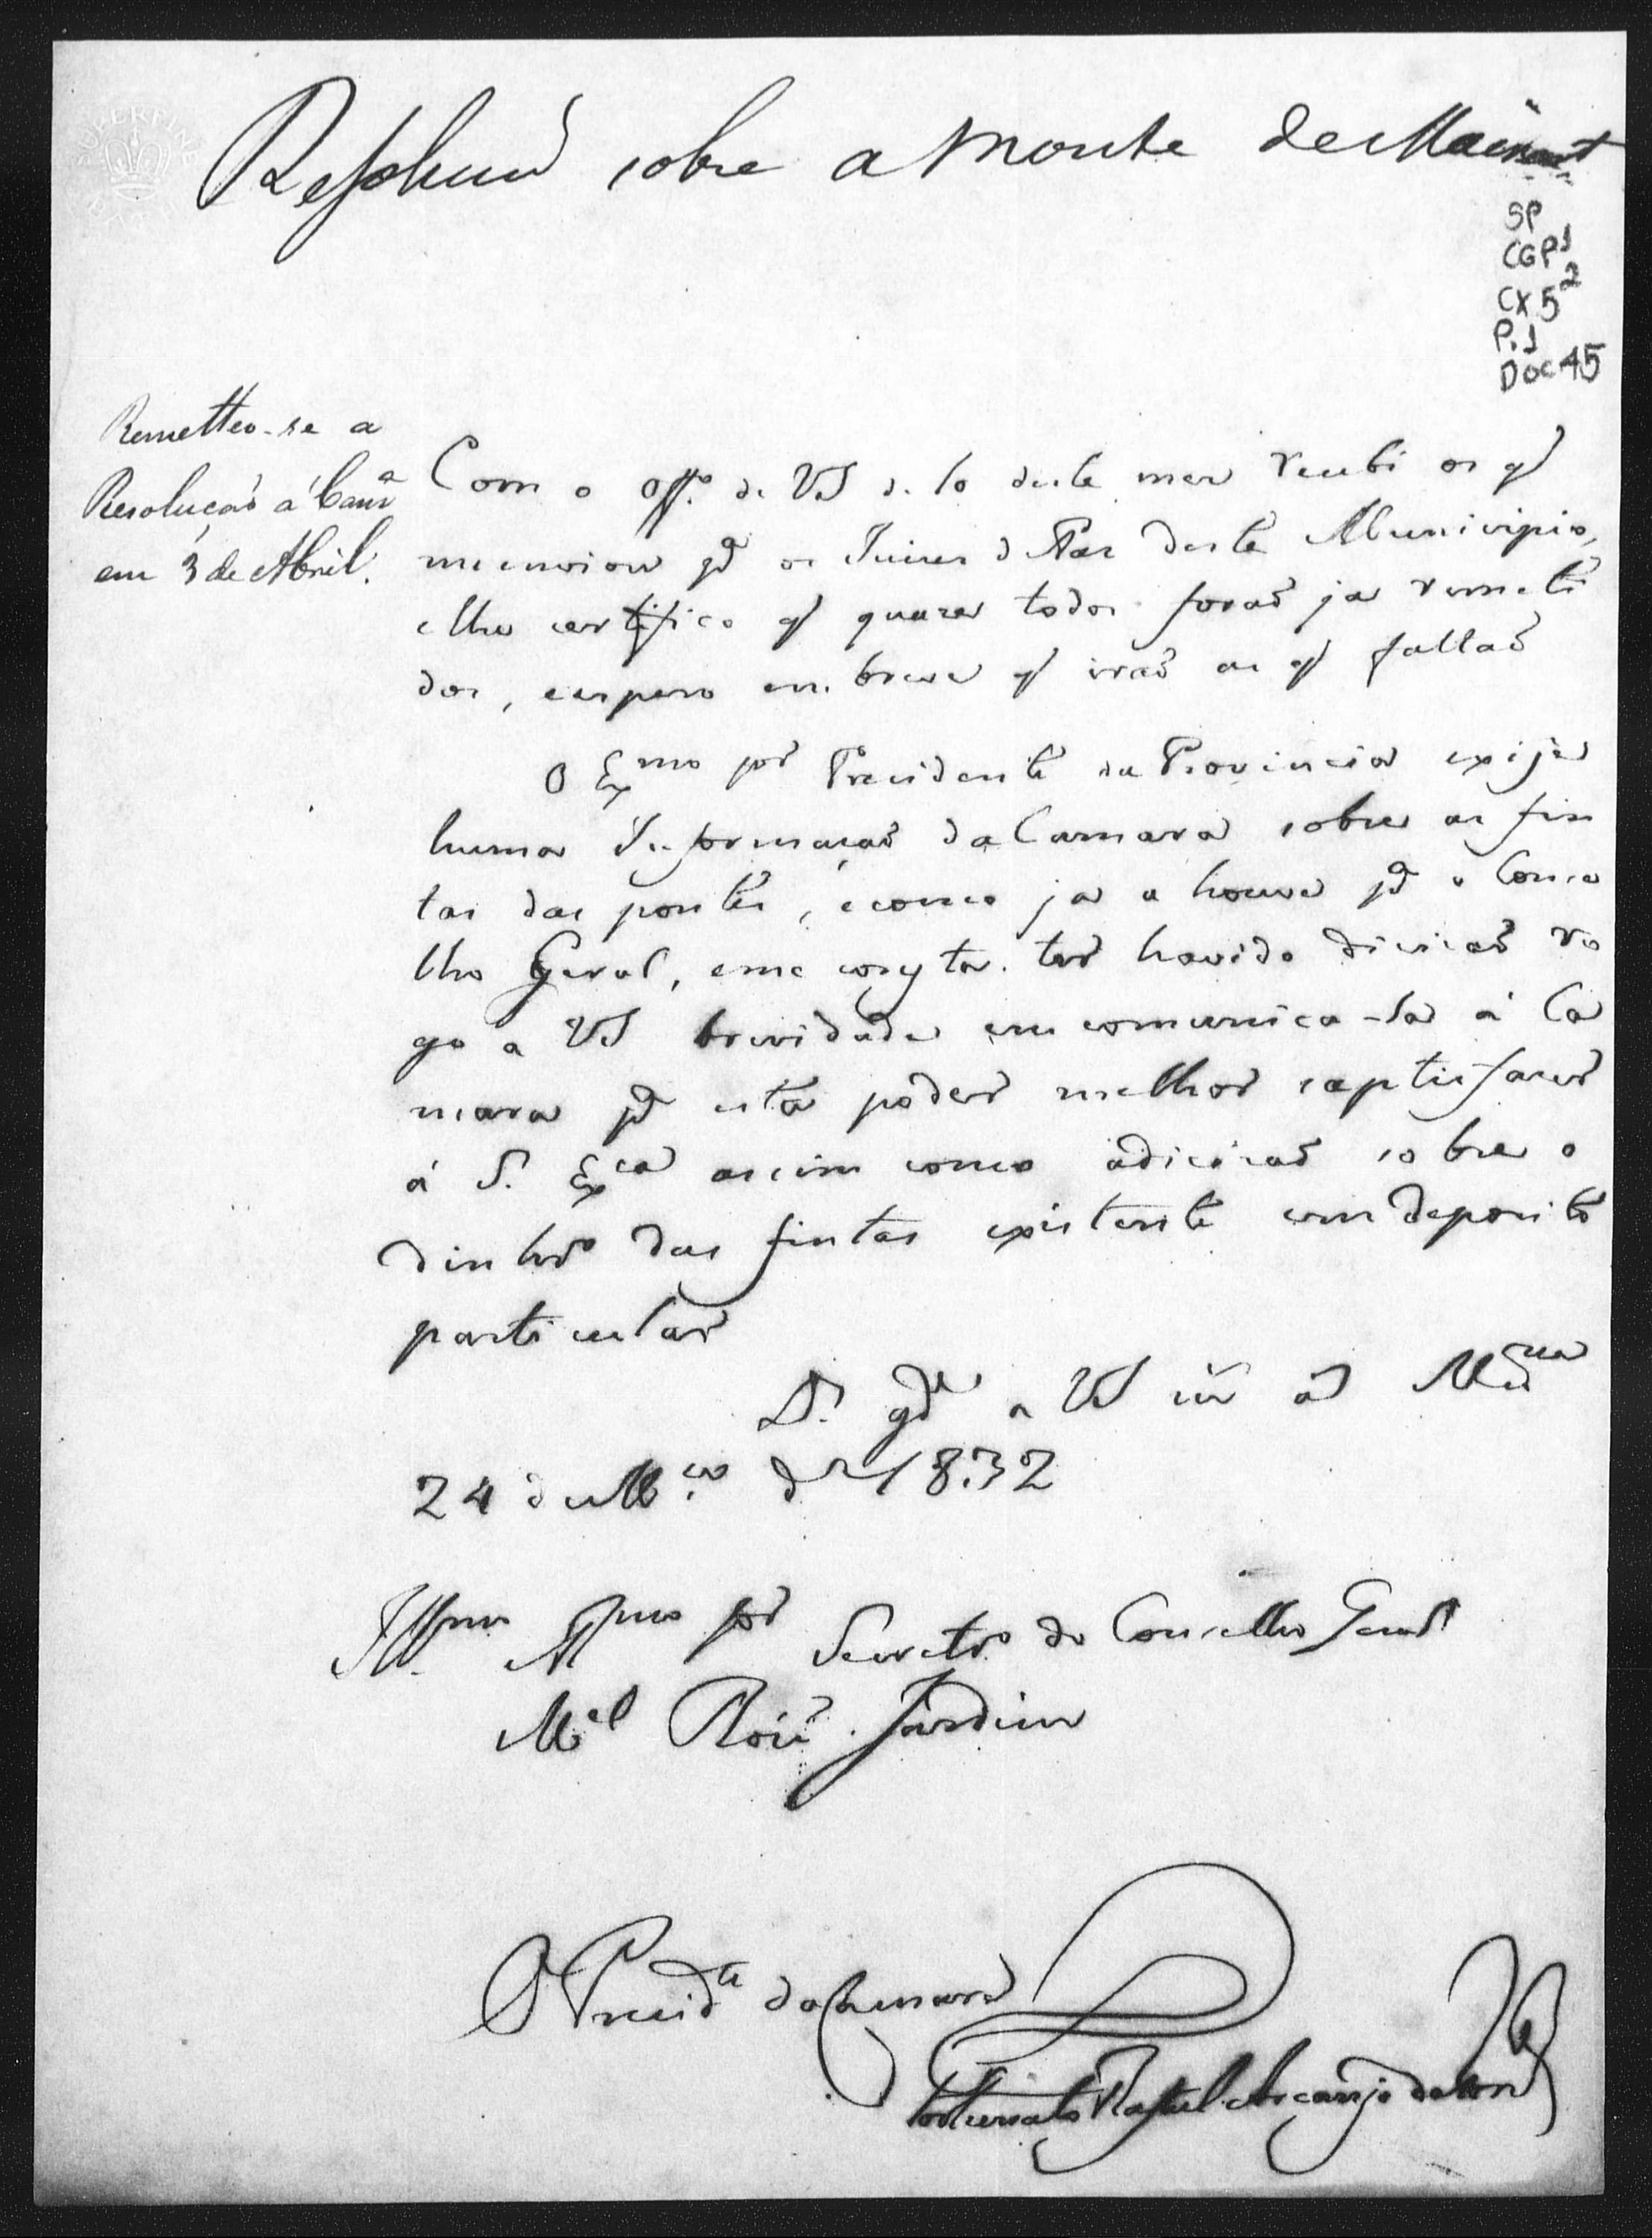 SUPERFINE
Resolução sobre a Monte de
SP
CGP1
CX 5 2
P.1
DOC 45
Remetteo-se a
Resolução á Camª
em 3 de Abril.
Com o offº de VS de 10 deste mez recebi os q
mencion pª os Juizes de Paz deste Municipio,
e lhe certifico q quaze todos forão ja remeti
dos, e espero em breve q irão os q faltaõ
O Exmo Snr Prezidente da Provincia exije
huma Informação da Camara sobre as fin
tas das pontes, e como ja a houve pª o Conce
lho Geral, e me consta ter havido dicizaõ ro
go a VS brevidade em comunica-la á Ca
mara pª esta poder melhor saptisfazer
á S. Exca assim como a dicizaõ sobre o
dinhrº das fintas existente em deposito
particular
Ds gde a VS
24 de Mço de 1832
Illmo Snr Secretrº do Concelho Geral
Mel Roiz Jardim
O Prezidte da Camara
Fortunato Rafael Arcanjo da